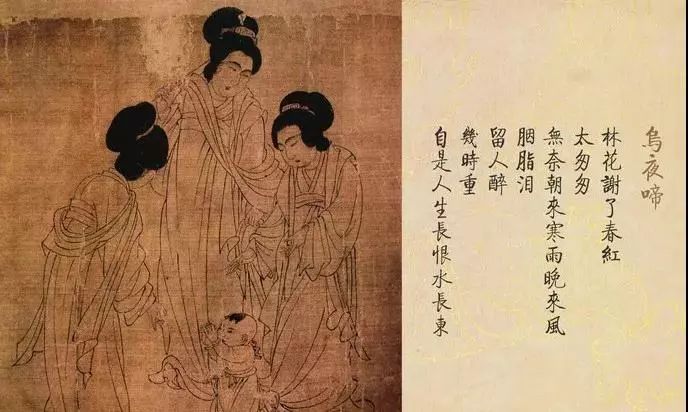 烏夜啼
林花謝了春紅
太匆匆
無奈朝來寒雨晚來風
胭脂泪
留人醉
幾時重
自是人生長恨水長東